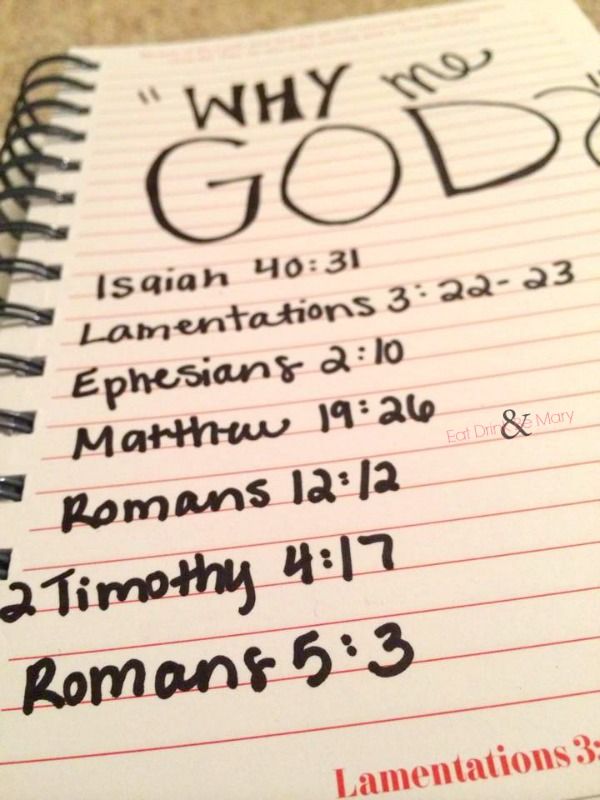 "WHY me
GOD
Isaiah 40:31
Lamentations 3:22-23
Ephesians 2:10
Matthew 19:26
Eat Drink & Be Mary
Romans 12:12
2 Timothy 4:17
Romans 5:3
Lamentations 3: